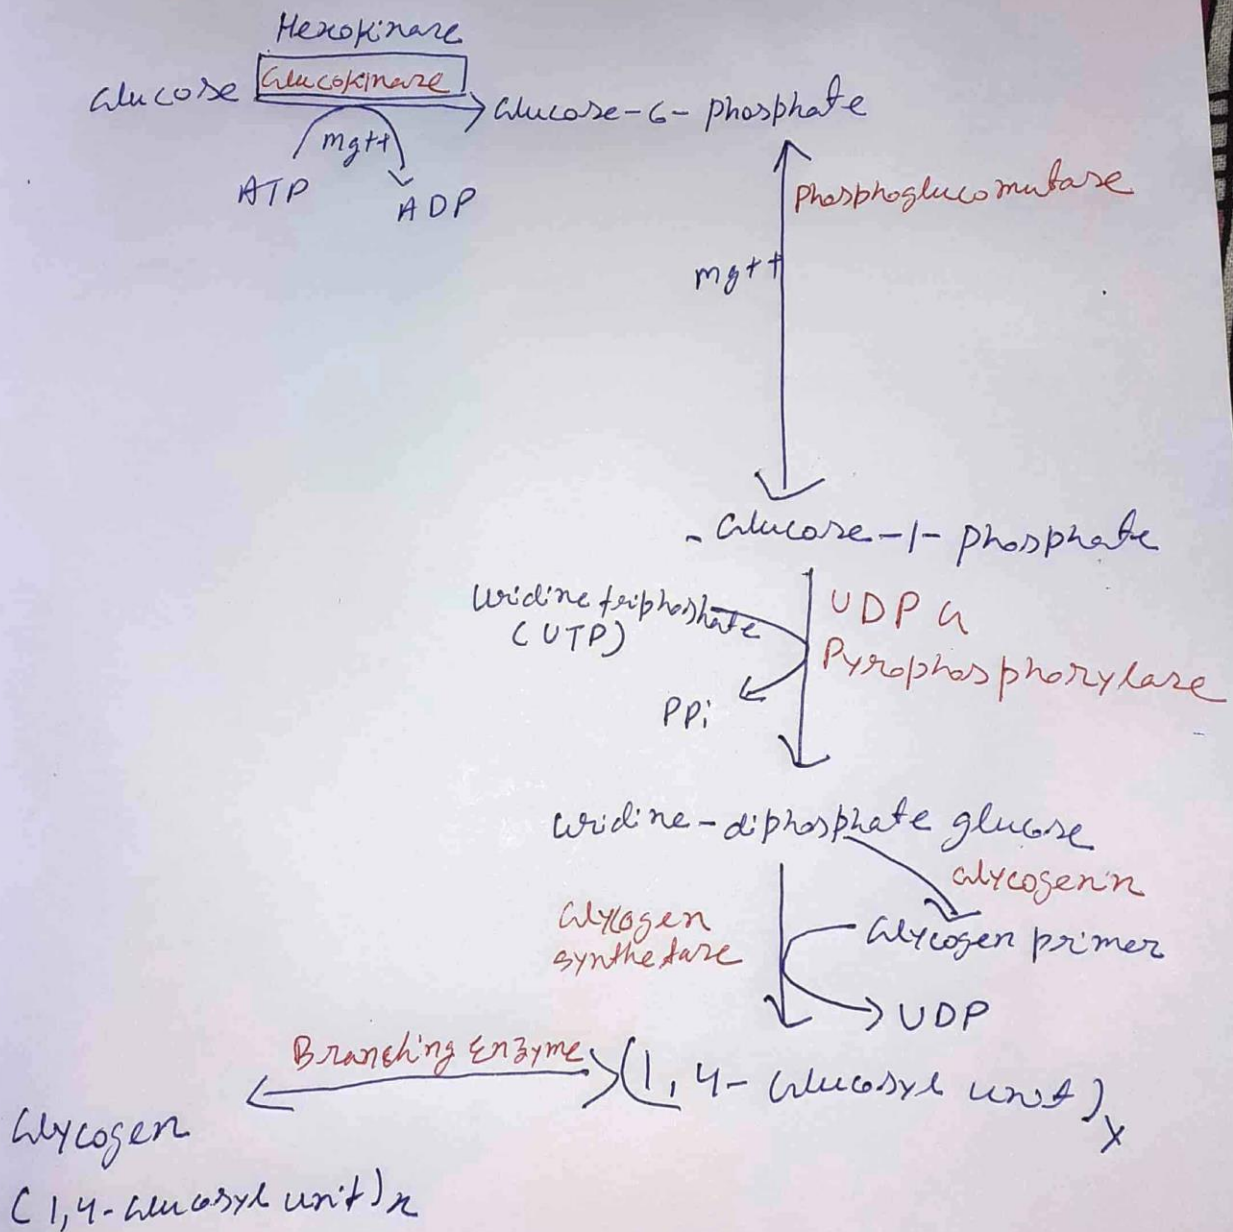 Hexokinase
Glucose Glucokinase Glucose-6-phosphate
Mg++
ATP ADP
Phosphoglucomutase
Mg++
Glucose-1-phosphate
Uridine triphoshate
(UTP)
UDP G
Pyrophosphorylase
PPi
Uridine-diphosphate glucose
Glycogenin
Glycogen
synthetase
Glycogen primer
UDP
Branching Enzyme
(1,4-Glucosyl unit)x
Glycogen
(1,4-Glucosyl unit)n